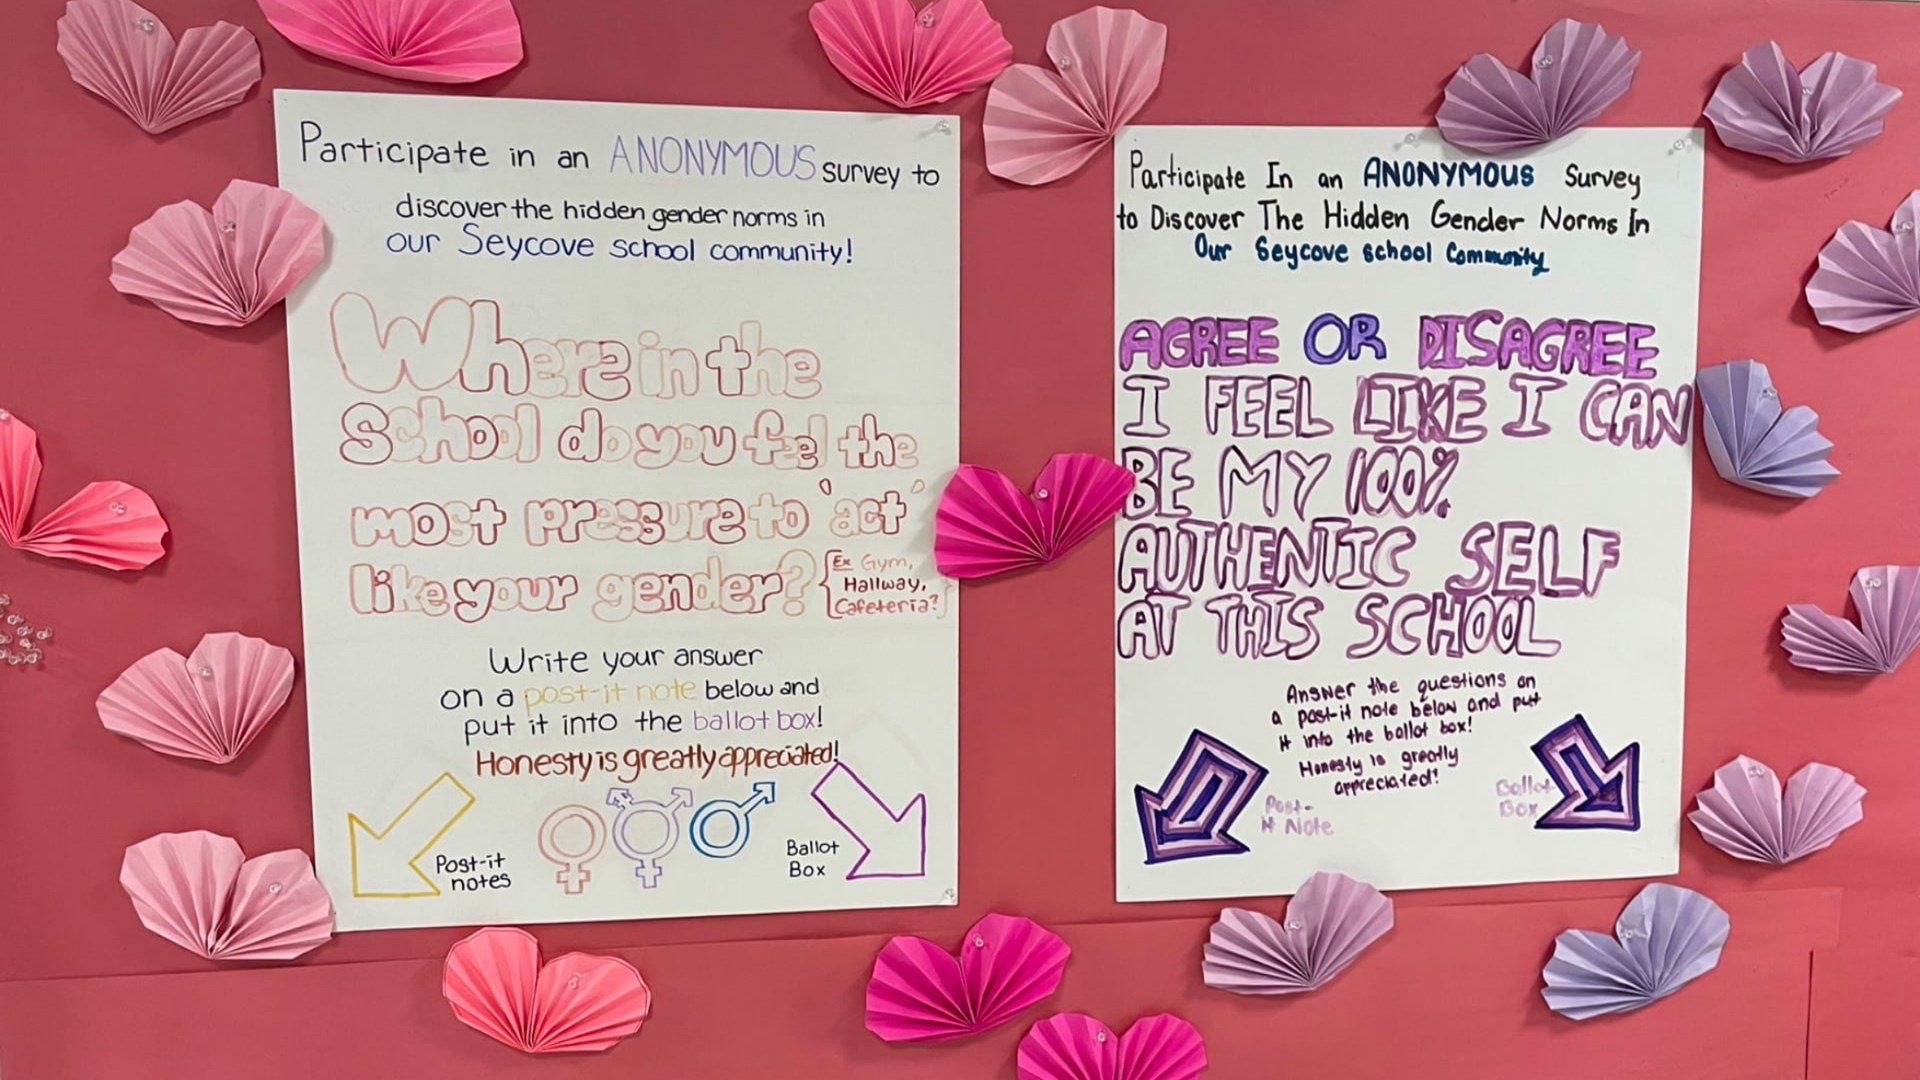 Participate in an ANONYMOUS survey to
discover the hidden gender norms in
our Seycove school community!
Where in the
School do you feel the
most pressure to 'act'
like your gender?
Ex Gym,
Hallway,
Cafeteria?
Write your answer
on a post-it note below and
put it into the ballot box!
Honesty is greatly appreciated!
Post-it
notes
Ballot
Box
Participate In an ANONYMOUS Survey
to Discover The Hidden Gender Norms In
Our Seycove school Community
AGREE OR DISAGREE
I FEEL LIKE I CAN
BE MY 100%
AUTHENTIC SELF
AT THIS SCHOOL
Answer the questions on
a post-it note below and put
it into the ballot box!
Honesty is greatly
appreciated!
Post-
it Note
Ballot
Box